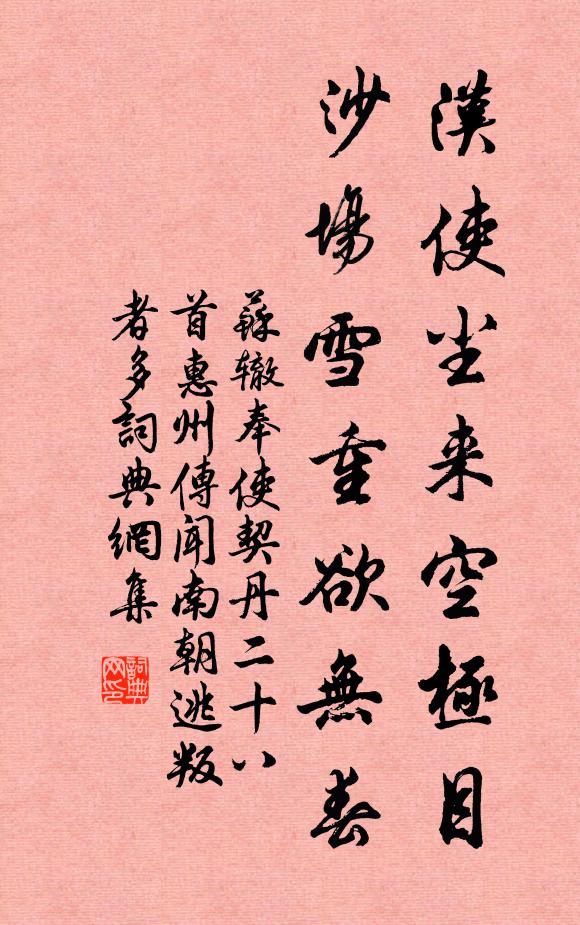 漢使尘来空極目
沙場雪重欲無春
蘇辙奉使契丹二十八
首惠州傳聞南朝逃叛
者多詞典網集
詞典网印